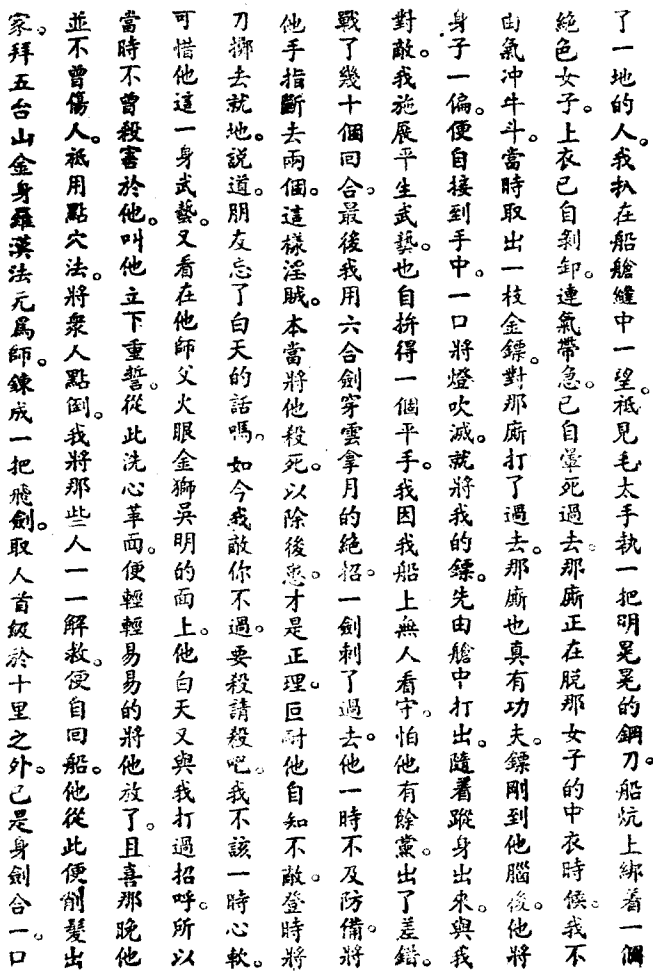 了一地的人。我扒在船艙縫中一望。祇見毛太手執一把明晃晃的鋼刀。船炕上綁着一個
絕色女子。上衣已自剝卸。連氣帶急。已自暈死過去。那廝正在脱那女子的中衣時候。我不
由氣冲牛斗。當時取出一枝金鏢。對那廝打了過去。那廝也真有功夫。鏢剛到他腦後。他將
身子一偏。便自接到手中。一口將燈吹滅。就將我的鏢。先由艙中打出。隨着蹤身出來。與我
對敵。我施展平生武藝。也自拚得一個平手。我因我船上無人看守。怕他有餘黨。出了差錯。
戰了幾十個回合。最後我用六合劍穿雲拿月的絕招。一劍刺了過去。他一時不及防備。將
他手指斷去兩個。這樣淫賊。本當將他殺死。以除後患。才是正理。叵耐他自知不敵。登時將
刀擲去就地。説道。朋友忘了白天的話嗎。如今我敵你不過。要殺請殺吧。我不該一時心軟。
可惜他這一身武藝。又看在他師父火眼金獅吳明的面上。他白天又與我打過招呼。所以
當時不曾殺害於他。叫他立下重誓。從此洗心革面。便輕輕易易的將他放了。且喜那晚他
並不曾傷人。祇用點穴法。將衆人點倒。我將那些人一一解救。便自回船。他從此便削髮出
家。拜五台山金身羅漢法元爲師。鍊成一把飛劍。取人首級於十里之外。已是身劍合一。口